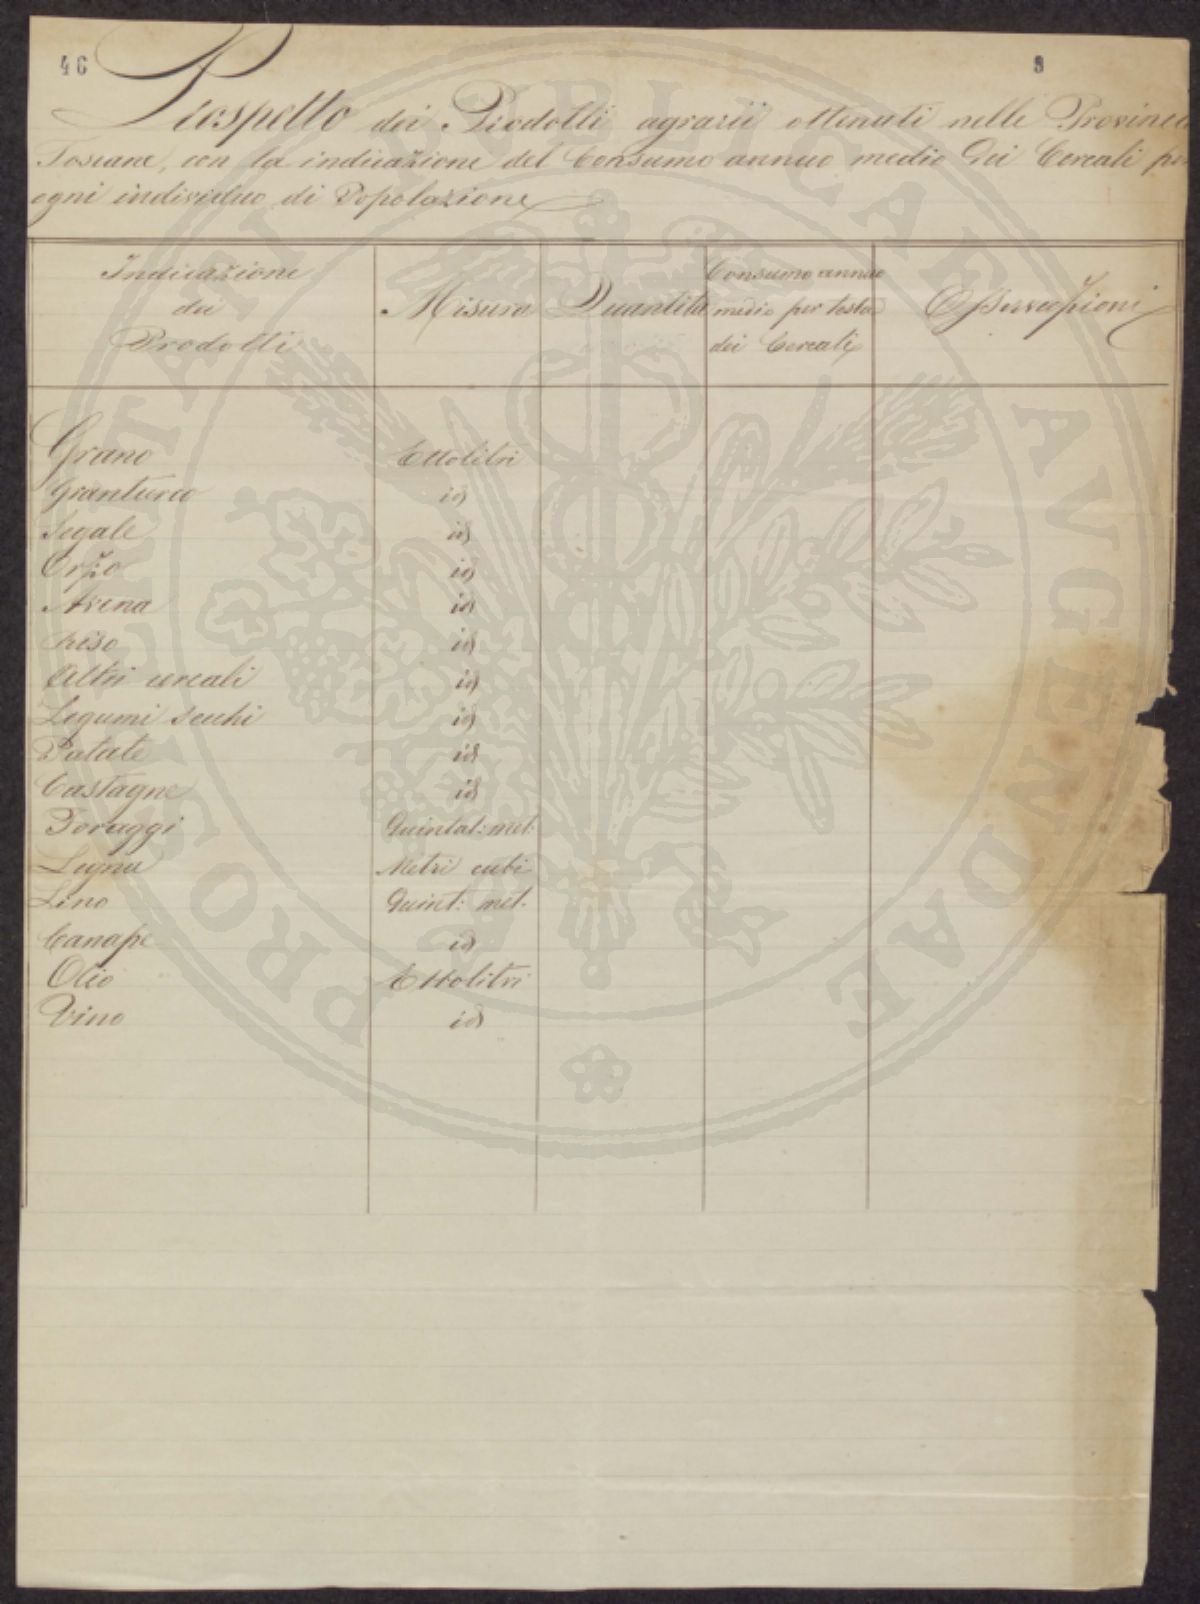 46
9
Prospetto dei Prodotti agrarii ottenuti nelle Provincie
Toscane, con la indicazione del Consumo annuo medio dei Cereali per
ogni individuo di Popolazione
Indicazione
dei
Prodotti
Misura
Quantità
Consumo annuo
medio per testa
dei Cereali
Osservazioni
Grano Ettolitri
Granturco id
Segale id
Orzo id
Avena id
Riso id
Altri cereali id
Legumi secchi id
Patate id
Castagne id
Foraggi Quintal: met:
Legna Metri cubi
Lino Quint: met.
Canape id
Olio Ettolitri
Vino id
PROSPERITATI PVBLICAE AVGENDAE